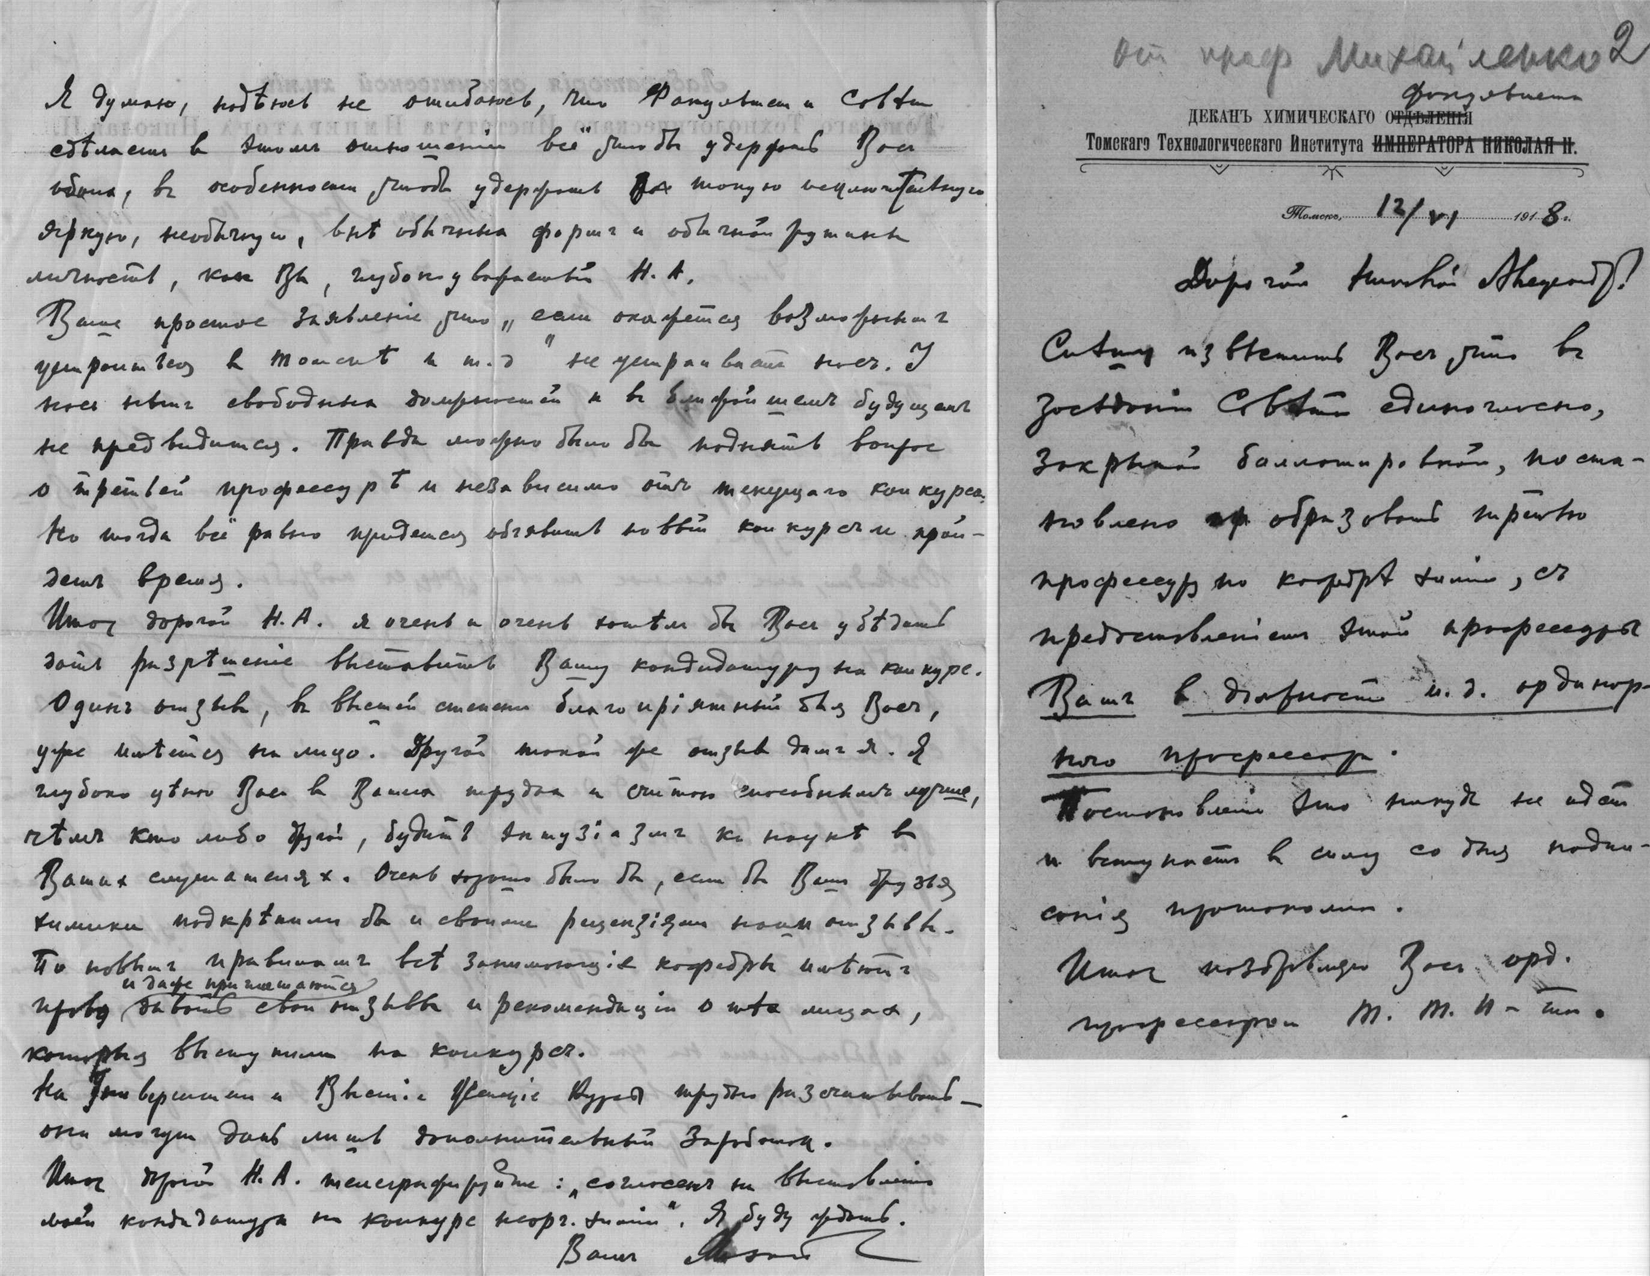 Я думаю, надѣюсь не ошибаюсь, что Факультет и Совѣт
сдѣлают в этомъ отношеніи всё чтобы удержать Вас
обоих, въ особенности чтобы удержать такую исключительную
яркую, необычную, внѣ обычных формъ и обычной рутины
личность, как Вы, глубокоуважаемый Н. А.
Ваше простое заявленіе что „если окажется возможнымъ
устроиться в Томскѣ и т.д" не устраиваетъ насъ. У
насъ нѣтъ свободныхъ должностей и въ ближайшемъ будущемъ
не предвидится. Правда можно было бы поднять вопрос
о третьей профессурѣ и независимо отъ текущаго конкурса.
Но тогда всё равно придется объявить новый конкурсъ и прой-
детъ время.
Итак дорогой Н. А. я очень и очень хотѣл бы Вас убѣдить
дать разрѣшеніе выставить Вашу кандидатуру на конкурс.
Одинъ отзывъ, в высшей степени благопріятный для Вас,
уже имѣется на лицо. Другой такой же отзыв дамъ я. Я
глубоко цѣню Вас и Ваши труды и считаю способнымъ лучше,
чѣмъ кто либо другой, будить энтузіазмъ к наукѣ в
Ваших слушателях. Очень хорошо было бы, если бы Ваши друзья
химики подкрѣпили бы и своими рецензіями наши отзывы.
По новымъ правиламъ всѣ занимающіе кафедры имѣютъ
и даже приглашаются
право давать свои отзывы и рекомендаціи о тѣх лицах,
которыя выступили на конкурсъ.
На Университет и Высшіе Женскіе Курсы трудно разсчитывать —
они могут дать лишь дополнительный заработок.
Итак дорогой Н. А. телеграфируйте: „согласенъ на выставленіе
моей кандидатуры на конкурс неорг. химіи". Я буду ждать.
Вашъ
от проф Михайленко 2
факультета
ДЕКАНЪ ХИМИЧЕСКАГО ОТДѢЛЕНІЯ
Томскаго Технологическаго Института ИМПЕРАТОРА НИКОЛАЯ II.
Томскъ, 12/VI 1918 г.
Дорогой Николай Александр!
Спѣшу извѣстить Васъ что въ
засѣданіи Совѣта единогласно,
закрытой баллотировкой, поста-
новлено образовать третью
профессуру по кафедрѣ химіи, съ
предоставленіемъ этой профессуры
Вамъ в должности и. д. ординар-
наго профессора.
Постановленіе это никуда не идетъ
и вступаетъ в силу со дня подпи-
санія протокола.
Итакъ поздравляю Васъ орд.
профессором Т. Т. И-та.